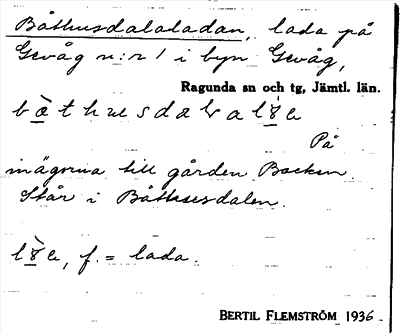 Båthusdalsladan, lada på
Gevåg n:r 1 i byn Gevåg,
Ragunda sn och tg, Jämtl. län.
På
inägorna till gården Backen.
Står i Båthusdalen.
f. = lada.
BERTIL FLEMSTRÖM 1936